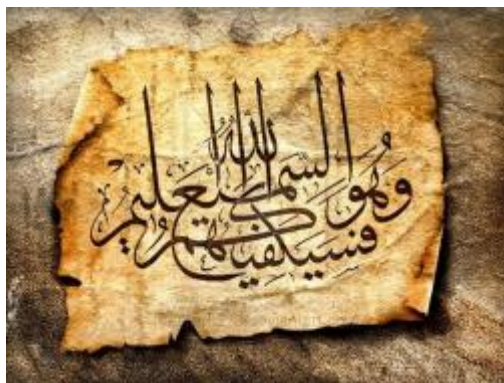 فسيكفيكهم الله
وَهُوَ السميع العليم